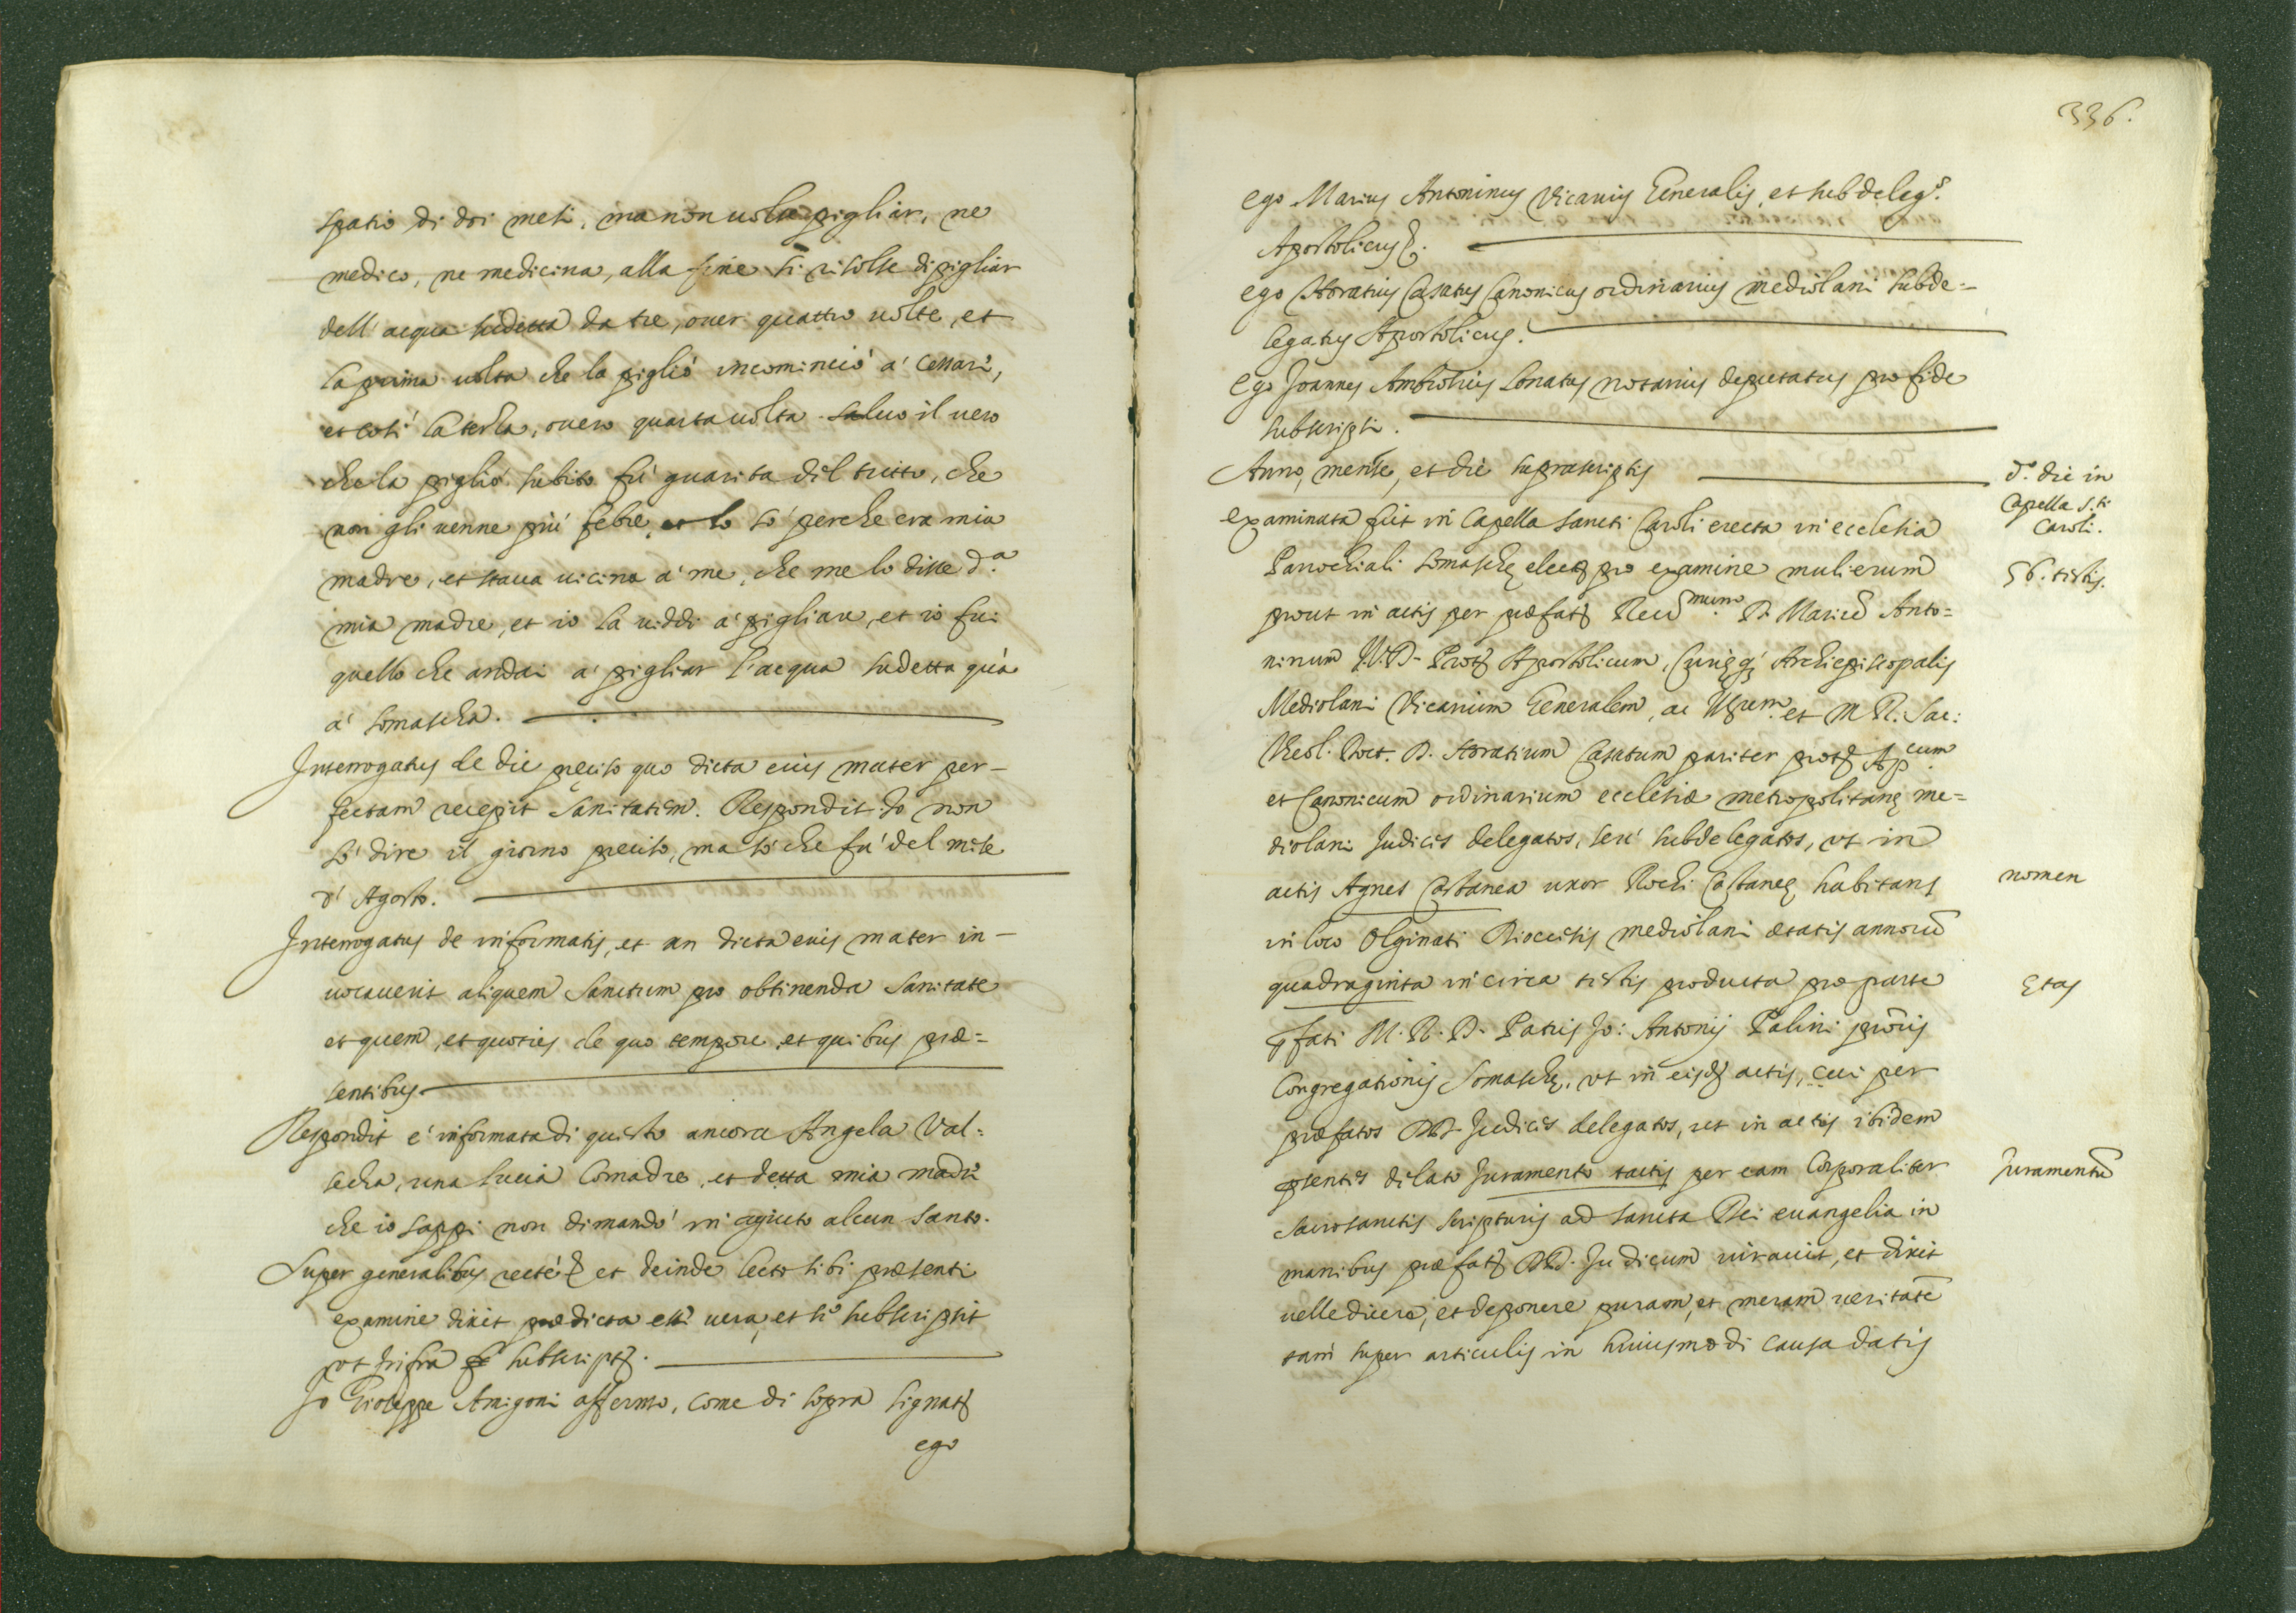 spatio di doi mesi, ma non uolse pigliar, ne
medico, ne medicina, alla fine si risolse di pigliar
dell' acqua sudetta da tre, ouer quattro uolte, et
la prima uolta che la pigliò incominciò à cessare,
et così la terza, ouero quarta uolta saluo il uero
che la pigliò subito fù guarita del tutto, che
non gli uenne più febre, et lo sò perche era mia
madre, et staua uicina à me, che me lo disse d.ª
mia madre, et io la uiddi à pigliare, et io fui
quello che andai à pigliar l'acqua sudetta quà
à somascha.
Interrogatus de die preciso quo dicta eius mater per-
fectam recepit sanitatem. Respondit Io non
sò dire il giorno preciso, ma sò che fù del mese
d'Agosto.
Interrogatus de informatis, et an dicta eius mater in-
uocauerit aliquem sanctum pro obtinenda sanitate
et quem, et quoties de quo tempore et quibus præ=
sentibus
Respondit è informata di questo ancora Angela Val=
secha, una lucia Comadre, et detta mia madre
che io sappi non dimandò in agiuto alcun santo.
Super generalibus recte et deinde lecto sibi præsenti
examine dixit prædicta esse uera, et se subscripsit
ut infra subscript.
Io Gioseppe Amigoni affermo, come di sopra signat
ego
336.
ego Marius Antoninus Vicarius Generalis, et subdeleg.s
Apostolicus
ego Horatius Casatus Canonicus ordinarius mediolani subde=
legatus Apostolicus.
Ego Joannes Ambrosius lonatus notarius deputatus pro fide
subscripsi.
Anno, mense, et die suprascriptis
d.º die in
Capella S.ti
Caroli.
examinata fuit in Capella sancti Caroli erecta in ecclesia
Parrochiali somaschę elect pro examine mulierum
56. testis.
prout in actis per præfat Reu.mum D. Mariũ Anto=
ninum Prot Apostolicum, Curięq Archiepiscopalis
Mediolani Vicarium Generalem, ac et M R. Sac:
Theol. Doct. D. Horatium Casatum pariter prot Ap.cum
et Canonicum ordinarium ecclesiæ metropolitanę me=
diolani Judices delegatos, seu subdelegatos, ut in
actis Agnes Castanea uxor Rochi Castaneę habitans
nomen
in loco Olginati Diocesis mediolani ætatis annorũ
quadraginta in circa testis producta pro parte
Etas
pfati M. R. D. Patris Jo: Antonij Palini prõris
Congregationis Somaschę, ut in eisd actis, cui per
præfatos DD Judices delegatos, ut in actis ibidem
psentes delato Juramento tactis per eam Corporaliter
Juramentũ
sacrosanctis scripturis ad sancta Dei euangelia in
manibus præfat DD. Judicum iurauit, et dixit
uelle dicere, et deponere puram, et meram ueritatẽ
tam super articulis in huiusmodi causa datis